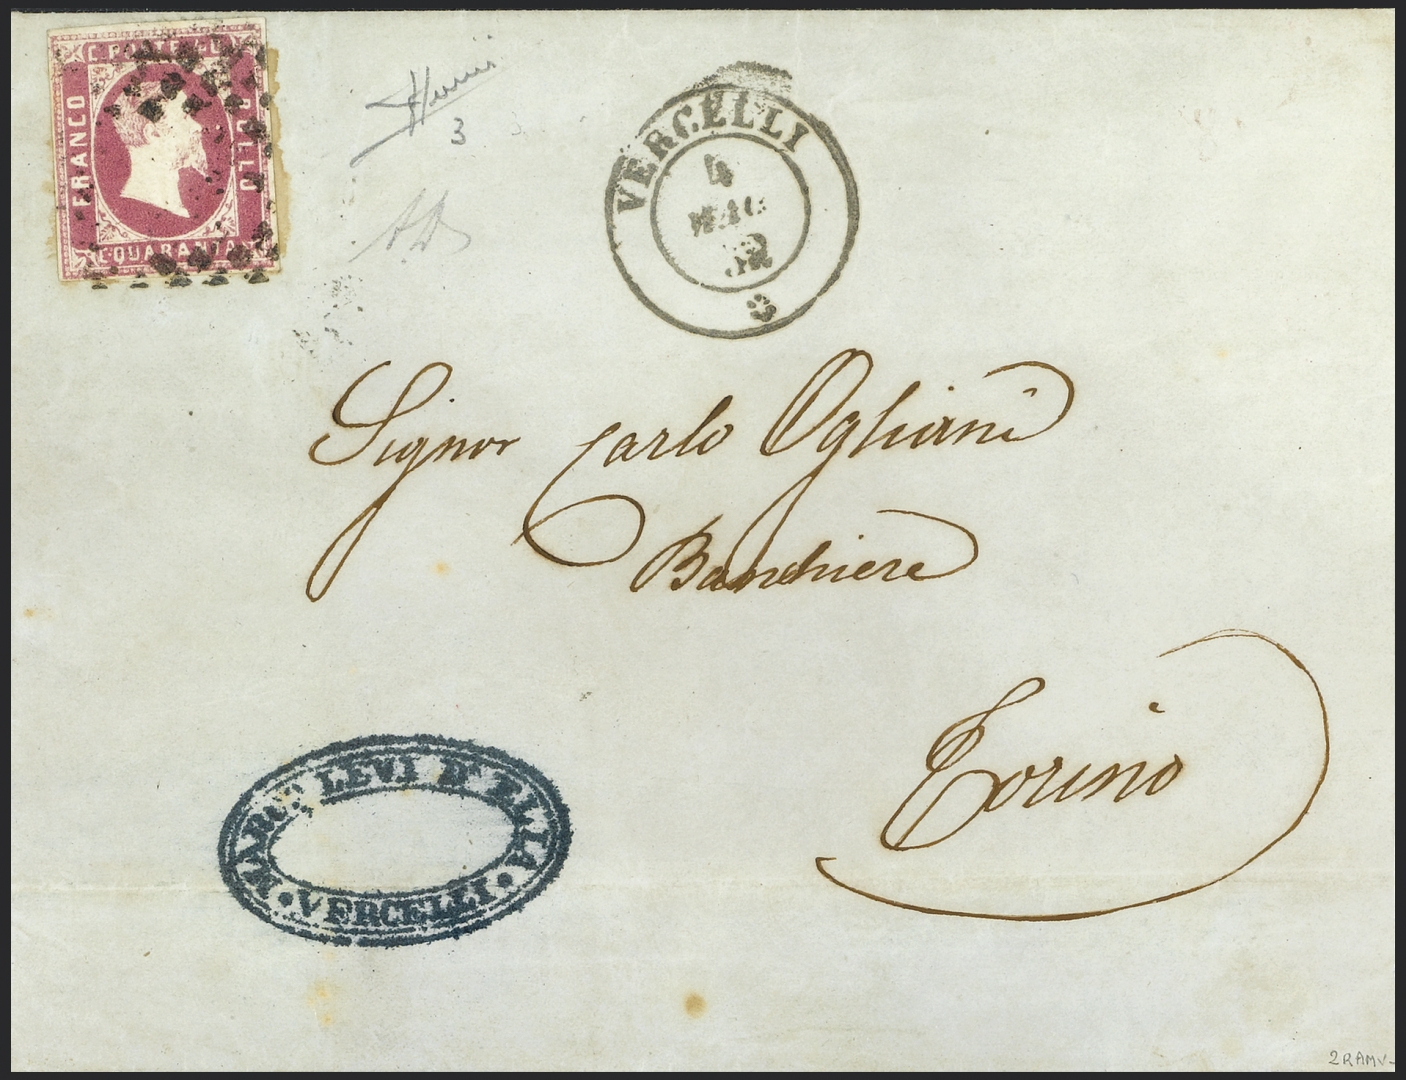 C. POSTE
FRANCO
BOLLO
C. QUARANTA
3
VERCELLI
4
MAG
52
Signor Carlo Ogliani
Banchiere
Torino
MARCO LEVI D' ELIA
• VERCELLI •
2RAMV-